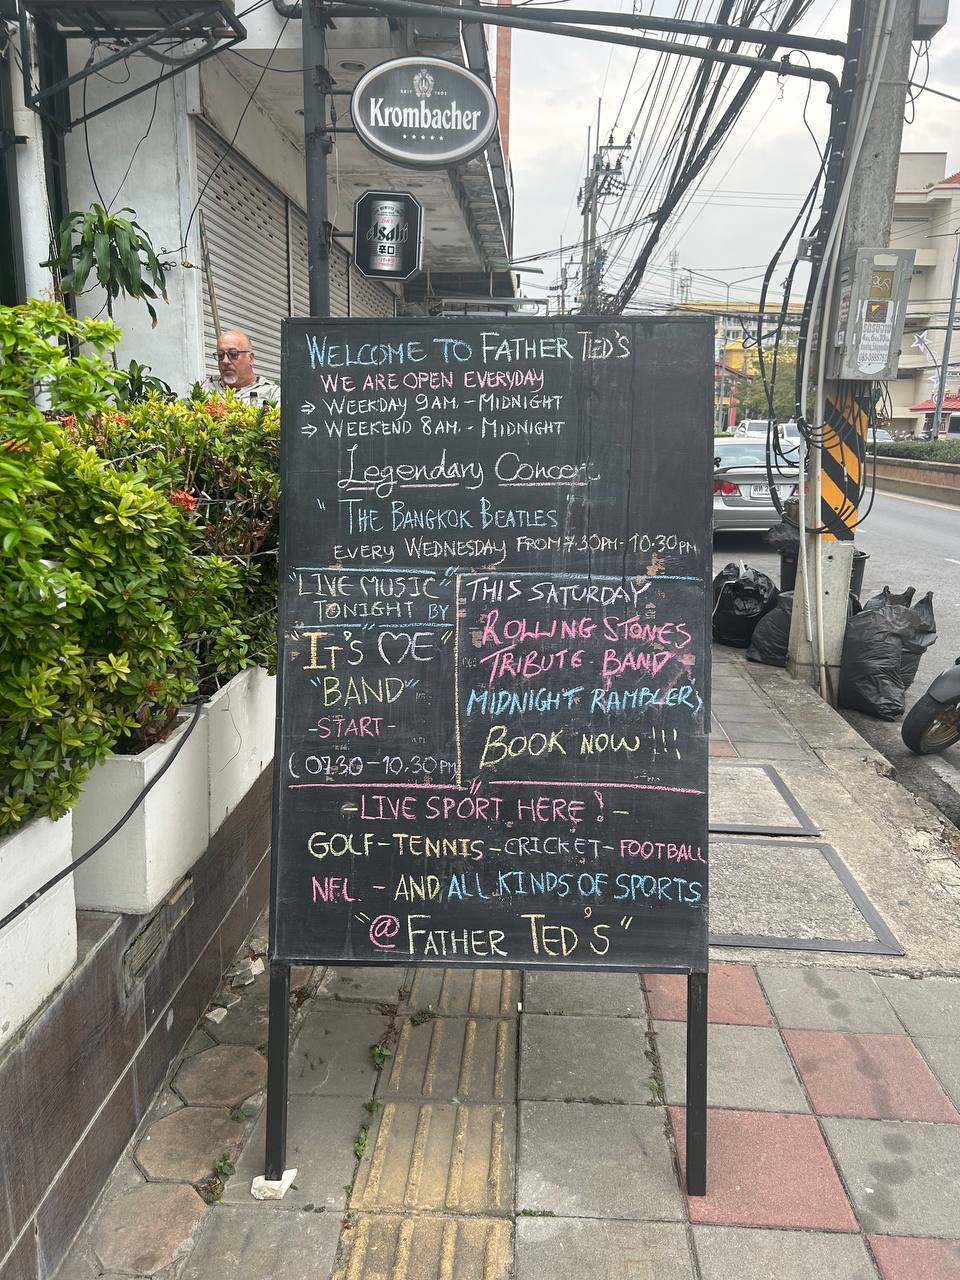 SEIT 1803
Krombacher
Asahi
辛口
WELCOME TO FATHER TED'S
WE ARE OPEN EVERYDAY
⇒ WEEKDAY 9AM. - MIDNIGHT
⇒ WEEKEND 8AM. - MIDNIGHT
Legendary Concert
"THE BANGKOK BEATLES"
EVERY WEDNESDAY FROM 7.30PM - 10.30PM
"LIVE MUSIC"
TONIGHT BY
"IT'S ♡ME"
"BAND"
-START-
(07.30-10.30PM
THIS SATURDAY
ROLLING STONES
TRIBUTE BAND
MIDNIGHT RAMBLER)
BOOK NOW!!!
-LIVE SPORT HERE!-
GOLF-TENNIS-CRICKET-FOOTBALL
NFL - AND ALL KINDS OF SPORTS
"@FATHER TED'S"